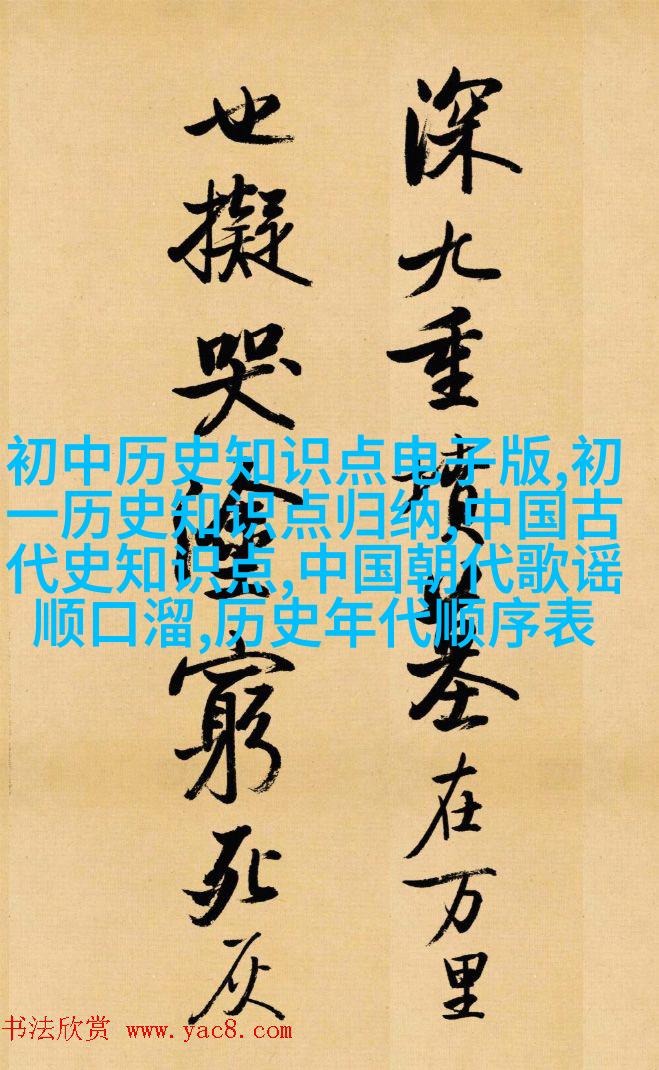 深九重墳墓在万里
也擬哭塗窮死灰
初中历史知识点电子版,初
一历史知识点归纳,中国古
代史知识点,中国朝代歌谣
顺口溜,历史年代顺序表
书法欣赏 www.yac8.com